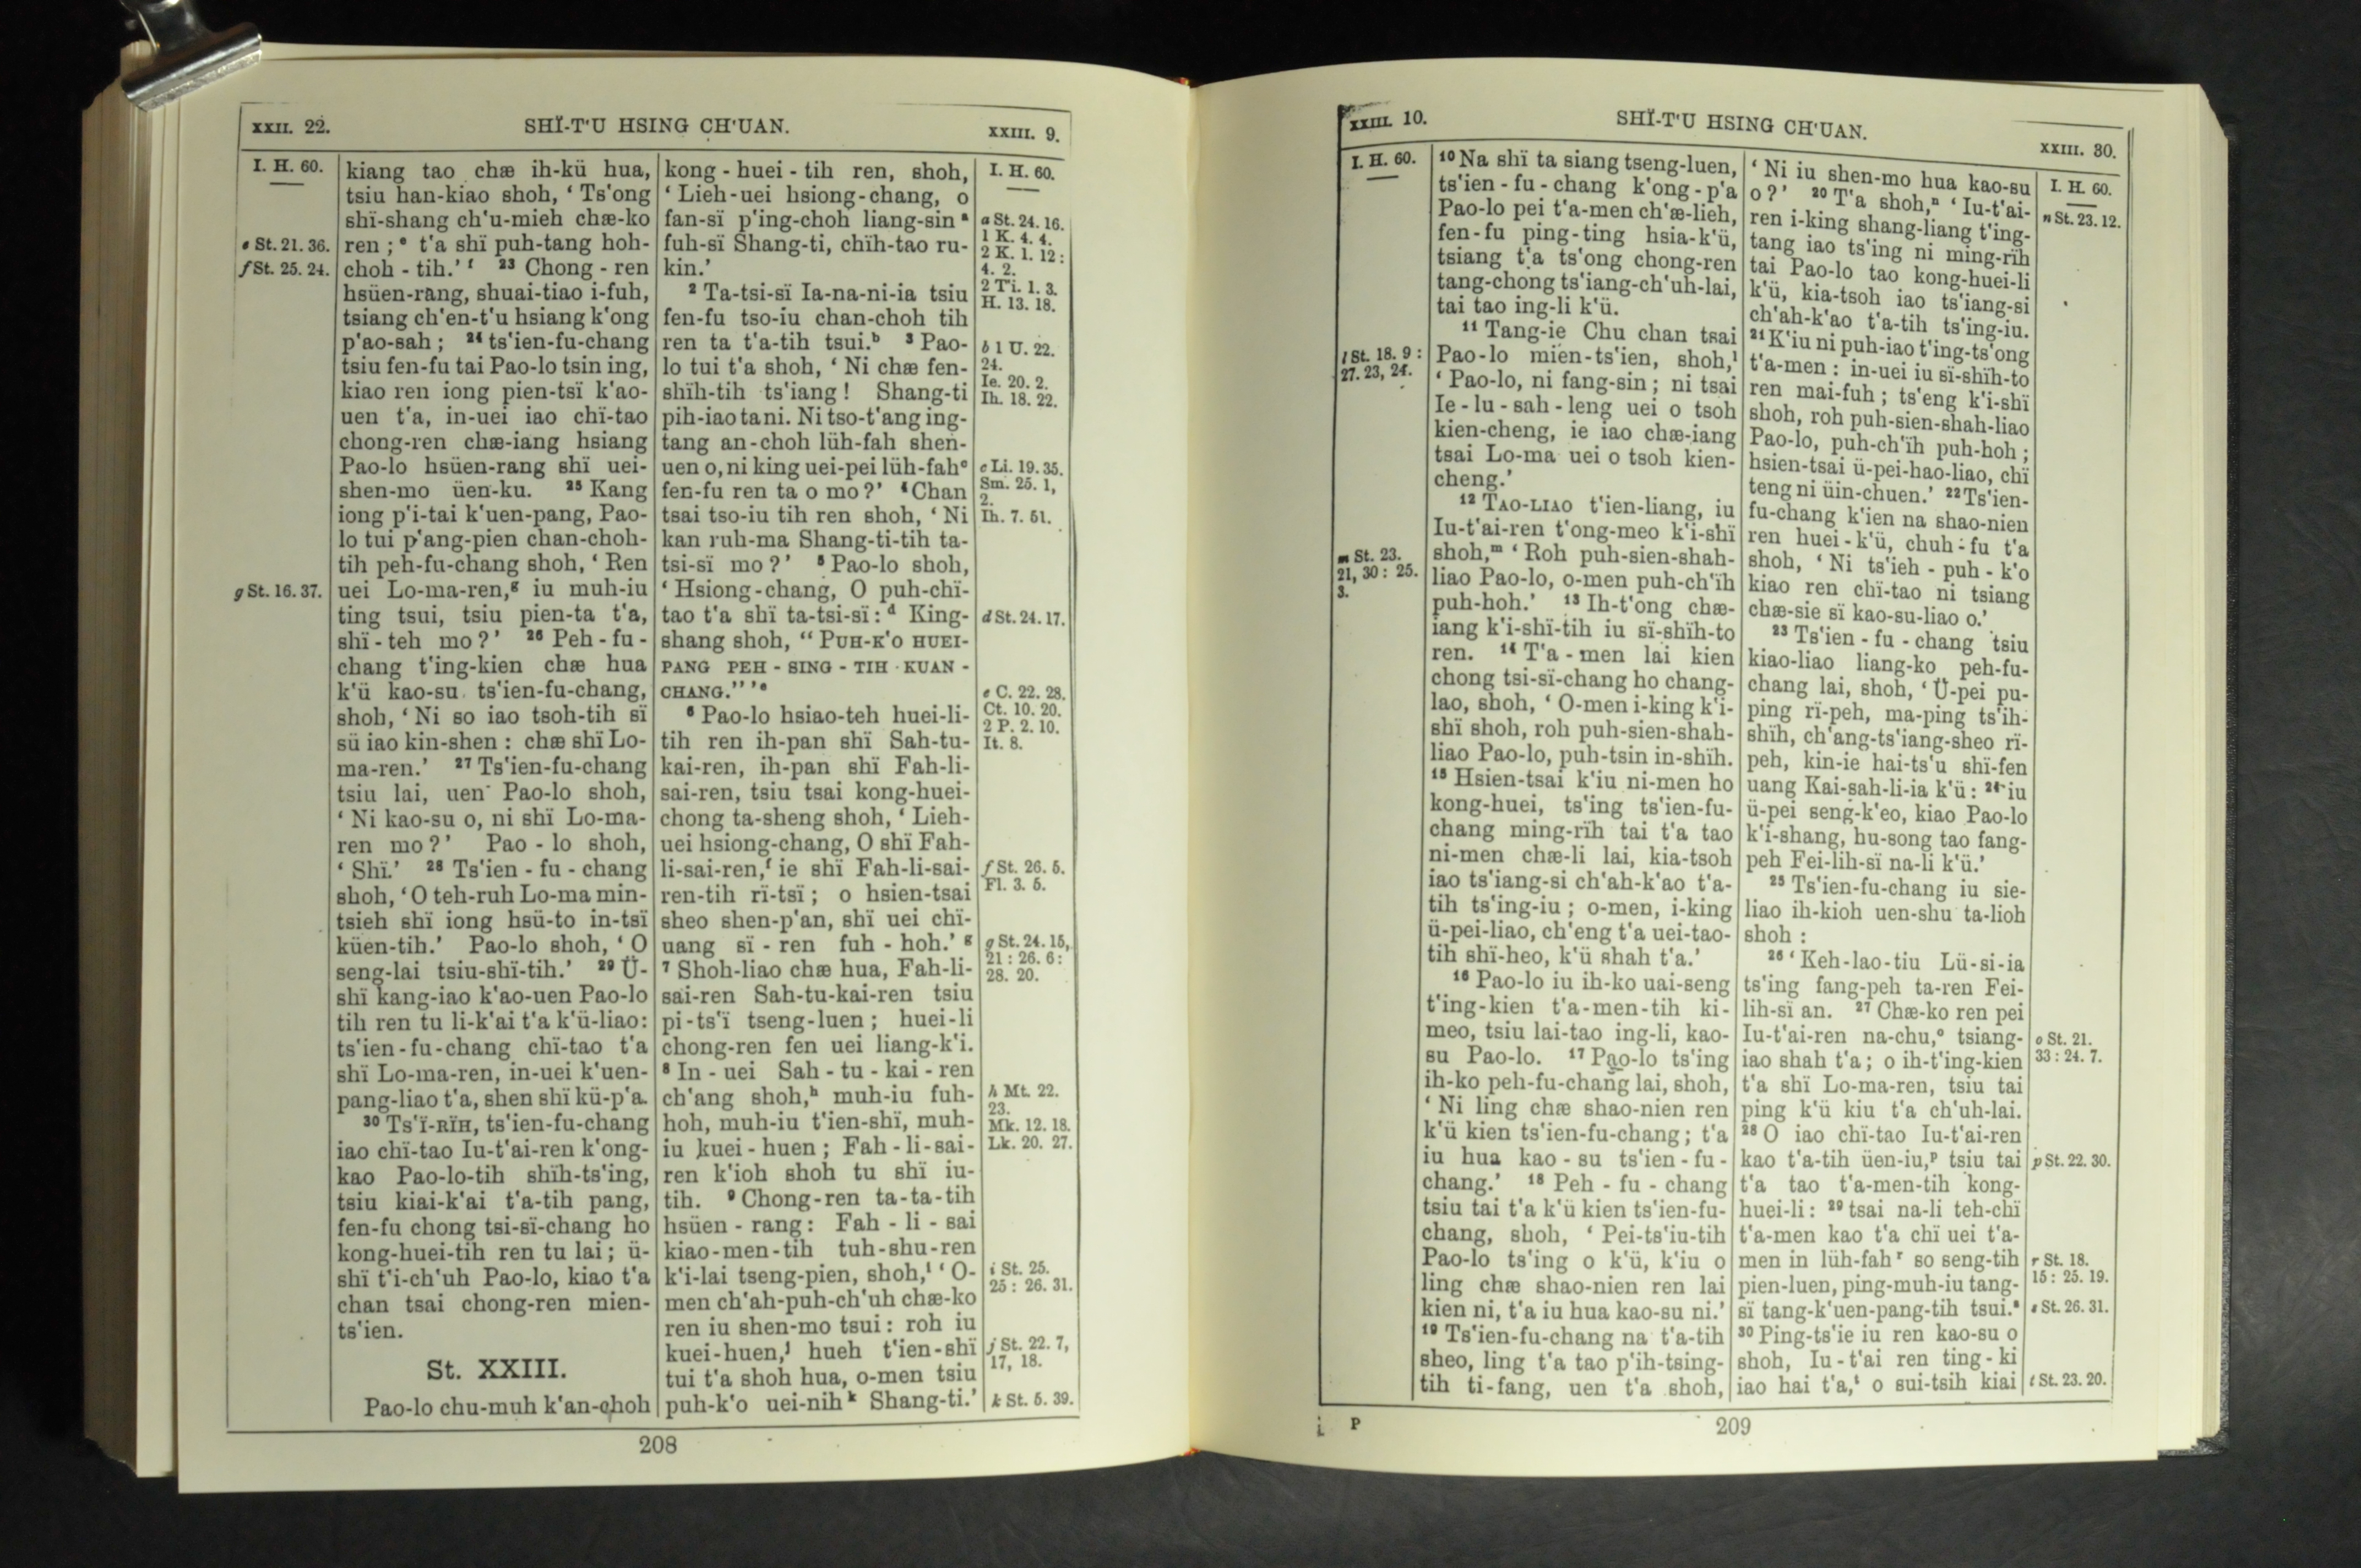 XXII. 22.
SHÏ-T'U HSING CH'UAN.
XXIII. 9.
I. H. 60.
e St. 21. 36.
f St. 25. 24.
g St. 16. 37.
kiang tao chæ ih-kü hua,
tsiu han-kiao shoh, ‘ Ts'ong
shï-shang ch'u-mieh chæ-ko
ren ;ᵉ t'a shï puh-tang hoh-
choh - tih.’ ᶠ ²³ Chong - ren
hsüen-rang, shuai-tiao i-fuh,
tsiang ch'en-t'u hsiang k'ong
p'ao-sah ; ²⁴ ts'ien-fu-chang
tsiu fen-fu tai Pao-lo tsin ing,
kiao ren iong pien-tsï k'ao-
uen t'a, in-uei iao chï-tao
chong-ren chæ-iang hsiang
Pao-lo hsüen-rang shï uei-
shen-mo üen-ku. ²⁵ Kang
iong p'i-tai k'uen-pang, Pao-
lo tui p'ang-pien chan-choh-
tih peh-fu-chang shoh, ‘ Ren
uei Lo-ma-ren,ᵍ iu muh-iu
ting tsui, tsiu pien-ta t'a,
shï - teh mo ?’ ²⁶ Peh - fu -
chang t'ing-kien chæ hua
k'ü kao-su ts'ien-fu-chang,
shoh, ‘ Ni so iao tsoh-tih sï
sü iao kin-shen : chæ shï Lo-
ma-ren.’ ²⁷ Ts'ien-fu-chang
tsiu lai, uen Pao-lo shoh,
‘ Ni kao-su o, ni shï Lo-ma-
ren mo ?’ Pao - lo shoh,
‘ Shï.’ ²⁸ Ts'ien - fu - chang
shoh, ‘ O teh-ruh Lo-ma min-
tsieh shï iong hsü-to in-tsï
küen-tih.’ Pao-lo shoh, ‘ O
seng-lai tsiu-shï-tih.’ ²⁹ Ü-
shï kang-iao k'ao-uen Pao-lo
tih ren tu li-k'ai t'a k'ü-liao :
ts'ien - fu - chang chï-tao t'a
shï Lo-ma-ren, in-uei k'uen-
pang-liao t'a, shen shï kü-p'a.
³⁰ Ts'ï-rïh, ts'ien-fu-chang
iao chï-tao Iu-t'ai-ren k'ong-
kao Pao-lo-tih shïh-ts'ing,
tsiu kiai-k'ai t'a-tih pang,
fen-fu chong tsi-sï-chang ho
kong-huei-tih ren tu lai ; ü-
shï t'i-ch'uh Pao-lo, kiao t'a
chan tsai chong-ren mien-
ts'ien.
St. XXIII.
Pao-lo chu-muh k'an-choh
kong - huei - tih ren, shoh,
‘ Lieh-uei hsiong-chang, o
fan-sï p'ing-choh liang-sin ᵃ
fuh-sï Shang-ti, chïh-tao ru-
kin.’
² Ta-tsi-sï Ia-na-ni-ia tsiu
fen-fu tso-iu chan-choh tih
ren ta t'a-tih tsui.ᵇ ³ Pao-
lo tui t'a shoh, ‘ Ni chæ fen-
shïh-tih ts'iang ! Shang-ti
pih-iao ta ni. Ni tso-t'ang ing-
tang an-choh lüh-fah shen-
uen o, ni king uei-pei lüh-fahᶜ
fen-fu ren ta o mo ?’ ⁴ Chan
tsai tso-iu tih ren shoh, ‘ Ni
kan ruh-ma Shang-ti-tih ta-
tsi-sï mo ?’ ⁵ Pao-lo shoh,
‘ Hsiong-chang, O puh-chï-
tao t'a shï ta-tsi-sï : ᵈ King-
shang shoh, “ PUH-K'O HUEI-
PANG PEH - SING - TIH KUAN -
CHANG.” ’ᵉ
⁶ Pao-lo hsiao-teh huei-li-
tih ren ih-pan shï Sah-tu-
kai-ren, ih-pan shï Fah-li-
sai-ren, tsiu tsai kong-huei-
chong ta-sheng shoh, ‘ Lieh-
uei hsiong-chang, O shï Fah-
li-sai-ren,ᶠ ie shï Fah-li-sai-
ren-tih rï-tsï ; o hsien-tsai
sheo shen-p'an, shï uei chï-
uang sï - ren fuh - hoh.’ ᵍ
⁷ Shoh-liao chæ hua, Fah-li-
sai-ren Sah-tu-kai-ren tsiu
pi-ts'ï tseng-luen ; huei-li
chong-ren fen uei liang-k'i.
⁸ In - uei Sah - tu - kai - ren
ch'ang shoh,ʰ muh-iu fuh-
hoh, muh-iu t'ien-shï, muh-
iu kuei - huen ; Fah - li - sai-
ren k'ioh shoh tu shï iu-
tih. ⁹ Chong-ren ta-ta-tih
hsüen - rang : Fah - li - sai
kiao-men-tih tuh-shu-ren
k'i-lai tseng-pien, shoh,ⁱ ‘ O-
men ch'ah-puh-ch'uh chæ-ko
ren iu shen-mo tsui : roh iu
kuei-huen,ʲ hueh t'ien-shï
tui t'a shoh hua, o-men tsiu
puh-k'o uei-nih ᵏ Shang-ti.’
I. H. 60.
a St. 24. 16.
1 K. 4. 4.
2 K. 1. 12 :
4. 2.
2 Ti. 1. 3.
H. 13. 18.
b 1 U. 22.
24.
Ie. 20. 2.
Ih. 18. 22.
c Li. 19. 35.
Sm. 25. 1,
2.
Ih. 7. 51.
d St. 24. 17.
e C. 22. 28.
Ct. 10. 20.
2 P. 2. 10.
It. 8.
f St. 26. 5.
Fl. 3. 5.
g St. 24. 15,
21 : 26. 6 :
28. 20.
h Mt. 22.
23.
Mk. 12. 18.
Lk. 20. 27.
i St. 25.
25 : 26. 31.
j St. 22. 7,
17, 18.
k St. 5. 39.
208
XXIII. 10.
SHÏ-T'U HSING CH'UAN.
XXIII. 30.
I. H. 60.
l St. 18. 9 :
27. 23, 24.
m St. 23.
21, 30 : 25.
3.
¹⁰ Na shï ta siang tseng-luen,
ts'ien - fu - chang k'ong - p'a
Pao-lo pei t'a-men ch'æ-lieh,
fen-fu ping-ting hsia-k'ü,
tsiang t'a ts'ong chong-ren
tang-chong ts'iang-ch'uh-lai,
tai tao ing-li k'ü.
¹¹ Tang-ie Chu chan tsai
Pao-lo mien-ts'ien, shoh,ˡ
‘ Pao-lo, ni fang-sin ; ni tsai
Ie - lu - sah - leng uei o tsoh
kien-cheng, ie iao chæ-iang
tsai Lo-ma uei o tsoh kien-
cheng.’
¹² TAO-LIAO t'ien-liang, iu
Iu-t'ai-ren t'ong-meo k'i-shï
shoh,ᵐ ‘ Roh puh-sien-shah-
liao Pao-lo, o-men puh-ch'ïh
puh-hoh.’ ¹³ Ih-t'ong chæ-
iang k'i-shï-tih iu sï-shïh-to
ren. ¹⁴ T'a - men lai kien
chong tsi-sï-chang ho chang-
lao, shoh, ‘ O-men i-king k'i-
shï shoh, roh puh-sien-shah-
liao Pao-lo, puh-tsin in-shïh.
¹⁵ Hsien-tsai k'iu ni-men ho
kong-huei, ts'ing ts'ien-fu-
chang ming-rïh tai t'a tao
ni-men chæ-li lai, kia-tsoh
iao ts'iang-si ch'ah-k'ao t'a-
tih ts'ing-iu ; o-men, i-king
ü-pei-liao, ch'eng t'a uei-tao-
tih shï-heo, k'ü shah t'a.’
¹⁶ Pao-lo iu ih-ko uai-seng
t'ing-kien t'a-men-tih ki-
meo, tsiu lai-tao ing-li, kao-
su Pao-lo. ¹⁷ Pao-lo ts'ing
ih-ko peh-fu-chang lai, shoh,
‘ Ni ling chæ shao-nien ren
k'ü kien ts'ien-fu-chang ; t'a
iu hua kao - su ts'ien - fu -
chang.’ ¹⁸ Peh - fu - chang
tsiu tai t'a k'ü kien ts'ien-fu-
chang, shoh, ‘ Pei-ts'iu-tih
Pao-lo ts'ing o k'ü, k'iu o
ling chæ shao-nien ren lai
kien ni, t'a iu hua kao-su ni.’
¹⁹ Ts'ien-fu-chang na t'a-tih
sheo, ling t'a tao p'ih-tsing-
tih ti-fang, uen t'a shoh,
‘ Ni iu shen-mo hua kao-su
o ?’ ²⁰ T'a shoh,ⁿ ‘ Iu-t'ai-
ren i-king shang-liang t'ing-
tang iao ts'ing ni ming-rïh
tai Pao-lo tao kong-huei-li
k'ü, kia-tsoh iao ts'iang-si
ch'ah-k'ao t'a-tih ts'ing-iu.
²¹ K'iu ni puh-iao t'ing-ts'ong
t'a-men : in-uei iu sï-shïh-to
ren mai-fuh ; ts'eng k'i-shï
shoh, roh puh-sien-shah-liao
Pao-lo, puh-ch'ïh puh-hoh ;
hsien-tsai ü-pei-hao-liao, chï
teng ni üin-chuen.’ ²² Ts'ien-
fu-chang k'ien na shao-nien
ren huei - k'ü, chuh - fu t'a
shoh, ‘ Ni ts'ieh - puh - k'o
kiao ren chï-tao ni tsiang
chæ-sie sï kao-su-liao o.’
²³ Ts'ien - fu - chang tsiu
kiao-liao liang-ko peh-fu-
chang lai, shoh, ‘ Ü-pei pu-
ping rï-peh, ma-ping ts'ih-
shïh, ch'ang-ts'iang-sheo rï-
peh, kin-ie hai-ts'u shï-fen
uang Kai-sah-li-ia k'ü : ²⁴ iu
ü-pei seng-k'eo, kiao Pao-lo
k'i-shang, hu-song tao fang-
peh Fei-lih-sï na-li k'ü.’
²⁵ Ts'ien-fu-chang iu sie-
liao ih-kioh uen-shu ta-lioh
shoh :
²⁶ ‘ Keh-lao-tiu Lü-si-ia
ts'ing fang-peh ta-ren Fei-
lih-sï an. ²⁷ Chæ-ko ren pei
Iu-t'ai-ren na-chu,ᵒ tsiang-
iao shah t'a ; o ih-t'ing-kien
t'a shï Lo-ma-ren, tsiu tai
ping k'ü kiu t'a ch'uh-lai.
²⁸ O iao chï-tao Iu-t'ai-ren
kao t'a-tih üen-iu,ᵖ tsiu tai
t'a tao t'a-men-tih kong-
huei-li : ²⁹ tsai na-li teh-chï
t'a-men kao t'a chï uei t'a-
men in lüh-fah ʳ so seng-tih
pien-luen, ping-muh-iu tang-
sï tang-k'uen-pang-tih tsui.ˢ
³⁰ Ping-ts'ie iu ren kao-su o
shoh, Iu - t'ai ren ting - ki
iao hai t'a,ᵗ o sui-tsih kiai
I. H. 60.
n St. 23. 12.
o St. 21.
33 : 24. 7.
p St. 22. 30.
r St. 18.
15 : 25. 19.
s St. 26. 31.
t St. 23. 20.
i P
209